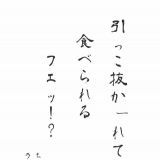 引っこ抜かれて
食べられる
フェッ!?
うた